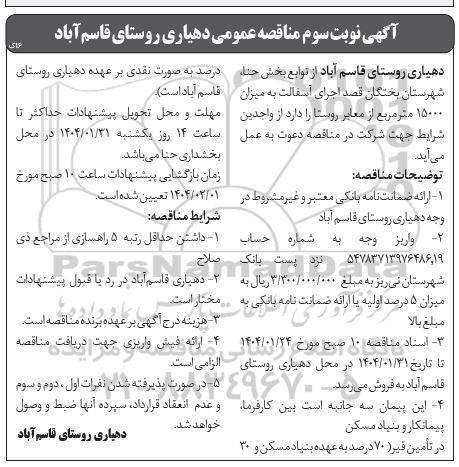 آگهی نوبت سوم مناقصه عمومی دهیاری روستای قاسم آباد
۱۶ک
دهیاری روستای قاسم آباد از توابع بخش حنا،
شهرستان بختگان قصد اجرای آسفالت به میزان
۱۵۰۰۰ متر مربع از معابر روستا را دارد از واجدین
شرایط جهت شرکت در مناقصه دعوت به عمل
می‌آید.
توضیحات مناقصه:
۱- ارائه ضمانت‌نامه بانکی معتبر و غیر مشروط در
وجه دهیاری روستای قاسم آباد
۲- واریز وجه به شماره حساب
۵۴۷۸۳۷۱۳۹۷۶۴۸۶,۱۹ نزد پست بانک
شهرستان نی‌ریز به مبلغ ۳/۳۰۰/۰۰۰/۰۰۰ ریال به
میزان ۵ درصد اولیه یا ارائه ضمانت نامه بانکی به
مبلغ بالا
۳- اسناد مناقصه ۱۰ صبح مورخ ۱۴۰۴/۰۱/۲۴
تا تاریخ ۱۴۰۴/۰۱/۳۱ در محل دهیاری روستای
قاسم آباد به فروش می‌رسد.
۴- این پیمان سه جانبه است بین کارفرما،
پیمانکار و بنیاد مسکن
در تأمین قیر( ۷۰ درصد به عهده بنیاد مسکن و ۳۰
درصد به صورت نقدی بر عهده دهیاری روستای
قاسم آباد است).
مهلت و محل تحویل پیشنهادات حداکثر تا
ساعت ۱۴ روز یکشنبه ۱۴۰۴/۰۱/۳۱ در محل
بخشداری حنا می‌باشد.
زمان بازگشایی پیشنهادات ساعت ۱۰ صبح مورخ
۱۴۰۴/۰۲/۰۱ تعیین شده است.
شرایط مناقصه:
۱- داشتن حداقل رتبه ۵ راهسازی از مراجع ذی
صلاح
۲- دهیاری قاسم‌آباد در رد یا قبول پیشنهادات
مختار است.
۳- هزینه درج آگهی بر عهده برنده مناقصه است.
۴- ارائه فیش واریزی جهت دریافت مناقصه
الزامی است.
۵- در صورت پذیرفته شدن نفرات اول ، دوم و سوم
و عدم انعقاد قرارداد، سپرده آنها ضبط و وصول
خواهد شد.
دهیاری روستای قاسم آباد